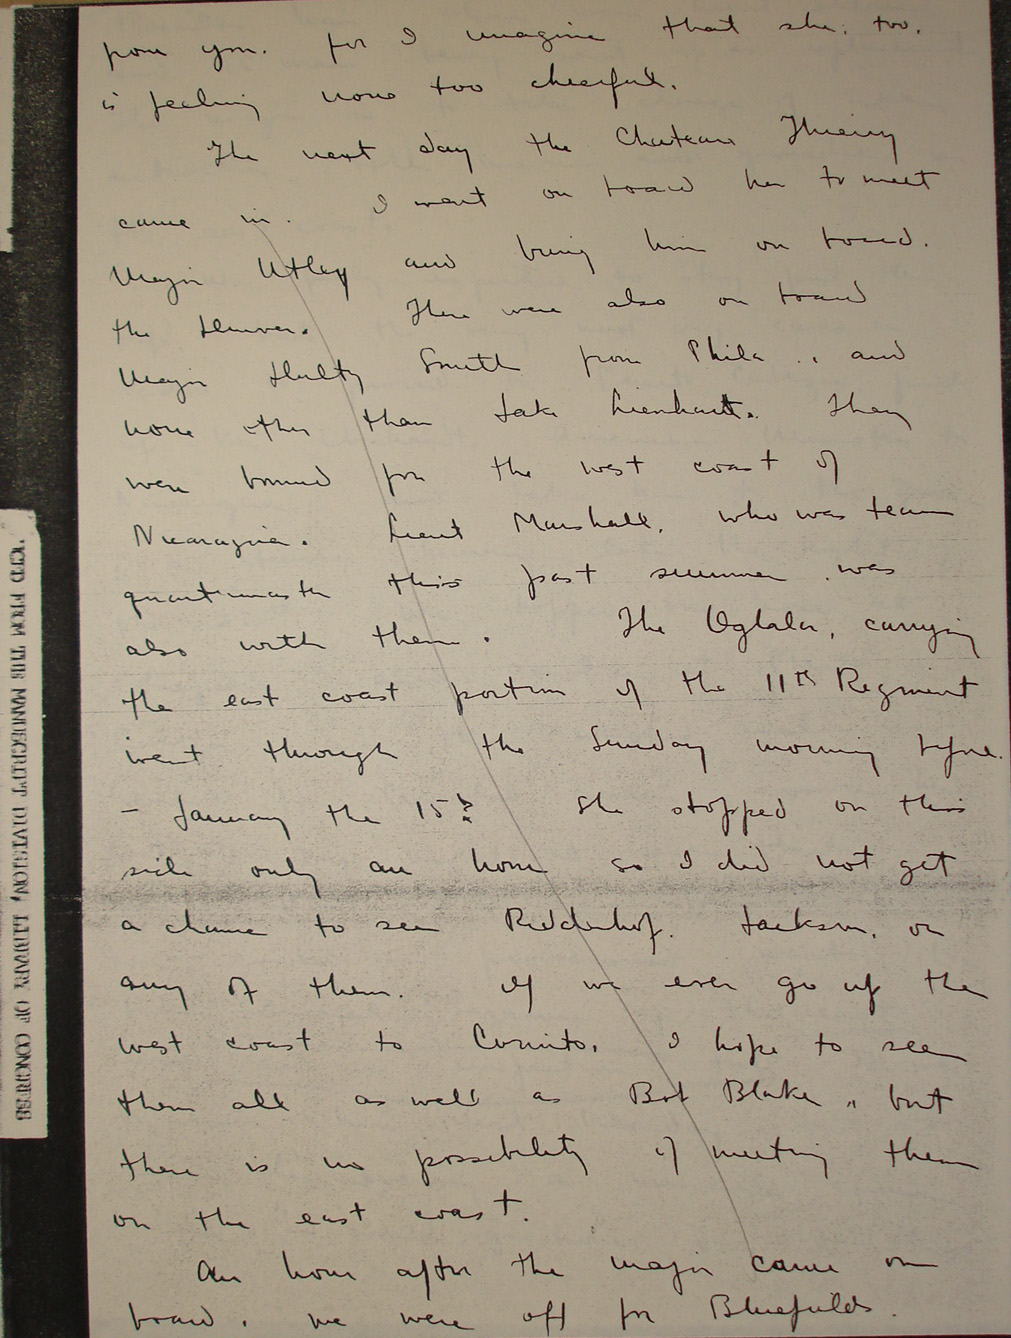 from you. for I imagine that she, too,
is feeling none too cheerful.
The next day the Chateau Thierry
came in. I went on board her to meet
Major Utley and bring him on board
the Denver. There were also on board
Major Smith from Phila., and
none other than Jake Lienhart. They
were bound for the west coast of
Nicaragua. Lieut Marshall, who was team
quartermaster this past summer, was
also with them. The Oglala, carrying
the east coast portion of the 11th Regiment
went through the Sunday morning before
- January the 15th. She stopped on this
side only an hour so I did not get
a chance to see Ridderhof, Jackson, or
any of them. If we ever go up the
west coast to Corinto, I hope to see
them all as well as Bob Blake, but
there is no possibility of meeting them
on the east coast.
An hour after the major came on
board, we were off for Bluefields.
FROM THE MANUSCRIPT DIVISION, LIBRARY OF CONGRESS